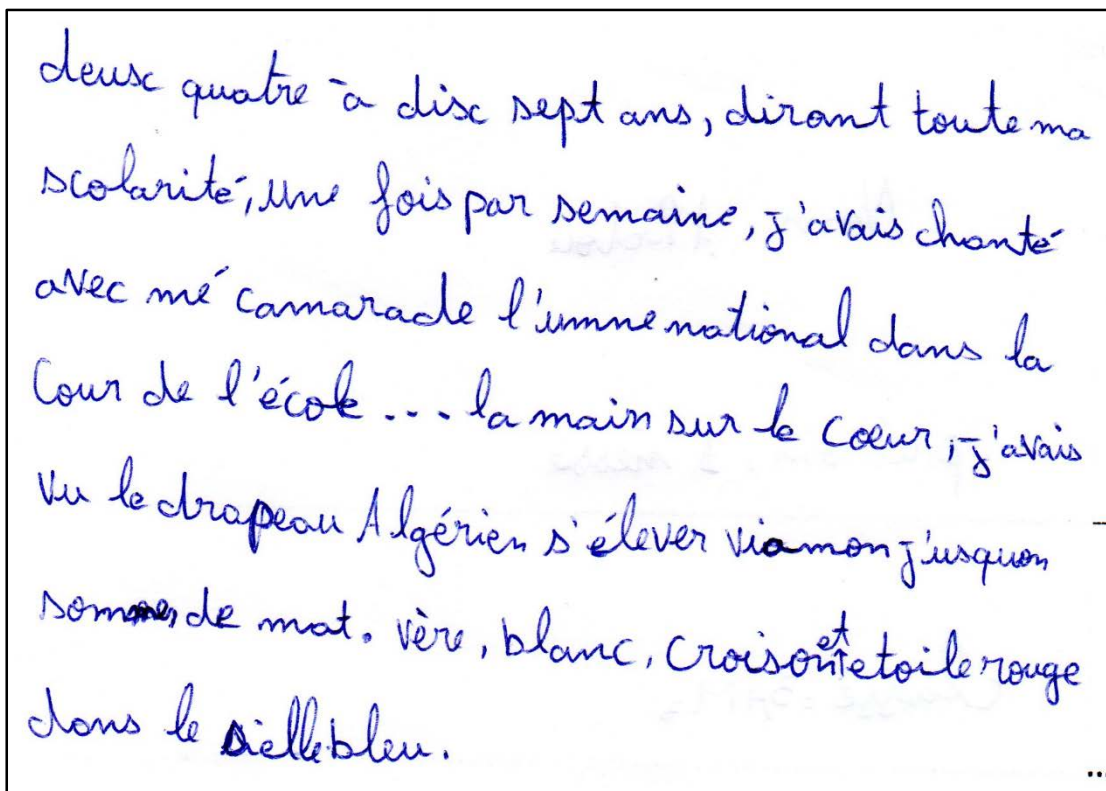 deusc quatre à disc sept ans, dirant toute ma
scolarité, une fois par semaine, j'avais chanté
avec mé camarade l'umne national dans la
Cour de l'école ... la main sur le Coeur, j'avais
vu le drapeau Algérien s'élever viamon j'usquon
de mat. Vère, blanc, Croison et etoile rouge
dans le sielle bleu.
...